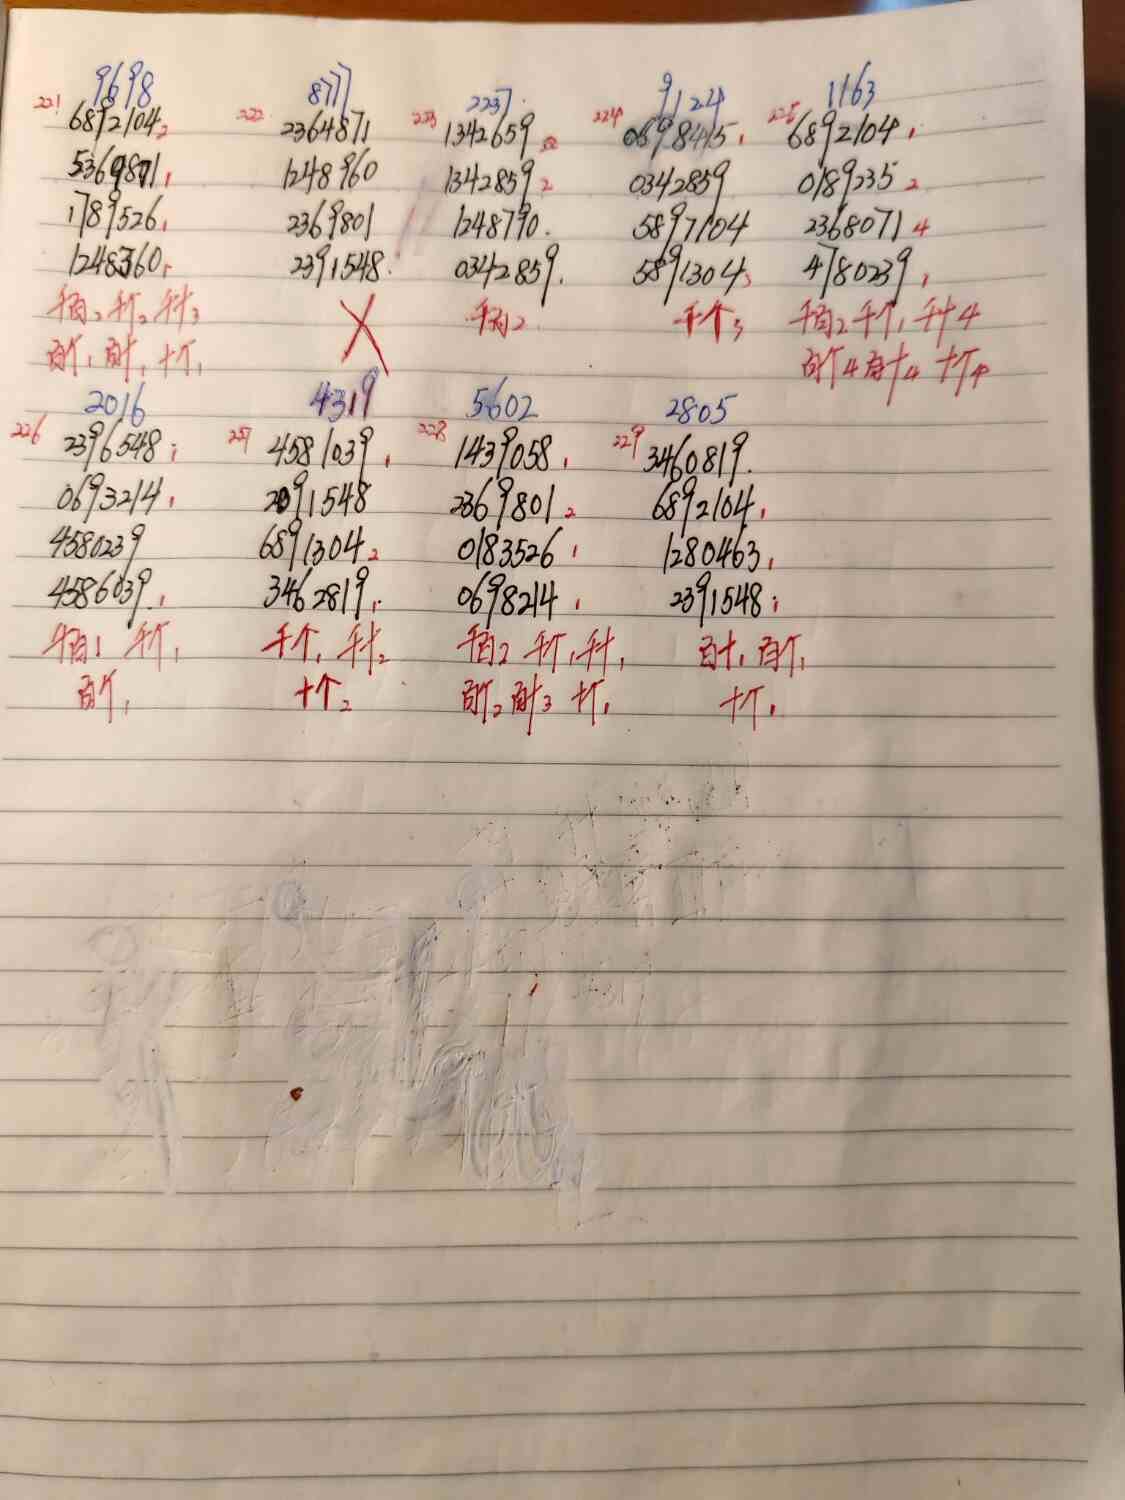 9698 8777 2237 9124 1163
221 6892104 2 222 2364871 223 1342659 224 0698415 1 225 6892104 1
5369871 1 1248960 1342859 2 0342859 0189235 2
1789526 1 2369801 1248790 5897104 2368071 4
1248360 1 2391548 0342859 5891304 3 4780239 1
千百2 千个2 千十3 千百2 千个3 千百2 千个1 千十4
百个1 百十1 十个1 百个4 百十4 十个4
2016 4319 5602 2805
226 2396548 1 227 4581039 1 228 1439058 1 229 3460819
0693214 1 2091548 2369801 2 6892104 1
4580239 6891304 2 0183526 1 1280463 1
4586039 1 3462819 1 0698214 1 2391548 1
千百1 千个1 千个1 千十2 千百2 千个1 千十1 百十1 百个1
百个1 十个2 百个2 百十3 十个1 十个1